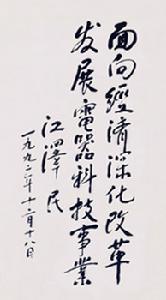 面向經濟深化改革
发展電器科技事業
江澤民
一九九二年十二月十八日